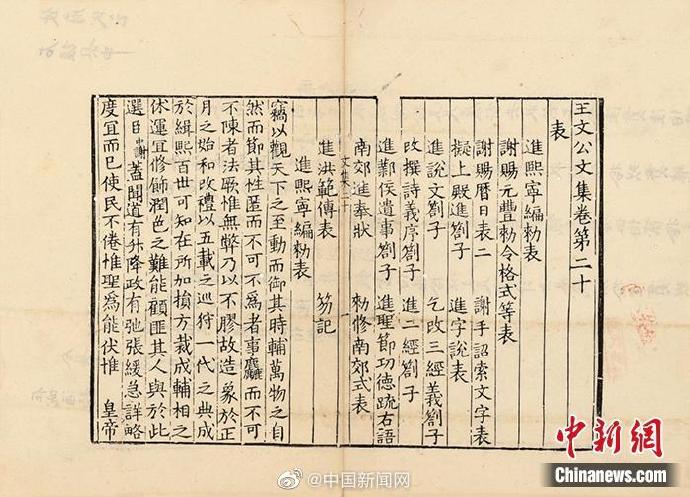 王文公文集卷第二十
表
進熙寧編勑表
謝賜元豐勑令格式等表
謝賜曆日表二 謝手詔索文字表
擬上殿進劄子 進字說表
進說文劄子 乞改三經義劄子
改撰詩義序劄子 進二經劄子
進鄴侯遺事劄子 進聖節功德疏右語
南郊進奉狀 勑修南郊式表
進洪範傳表 笏記
進熙寧編勑表
竊以觀天下之至動而御其時輔萬物之自
然而節其性匿而不可不為者事麤而不可
不陳者法歟惟無弊乃以不膠故造象於正
月之始和改禮以五載之巡狩一代之典成
於緝熙百世可知在所加損方裁成輔相之
休運宜修飾潤色之難能顧匪其人與於此
選臣中謝蓋聞道有升降政有弛張緩急詳略
度宜而已使民不倦惟聖爲能伏惟 皇帝
@中国新闻网
中新网
Chinanews.com